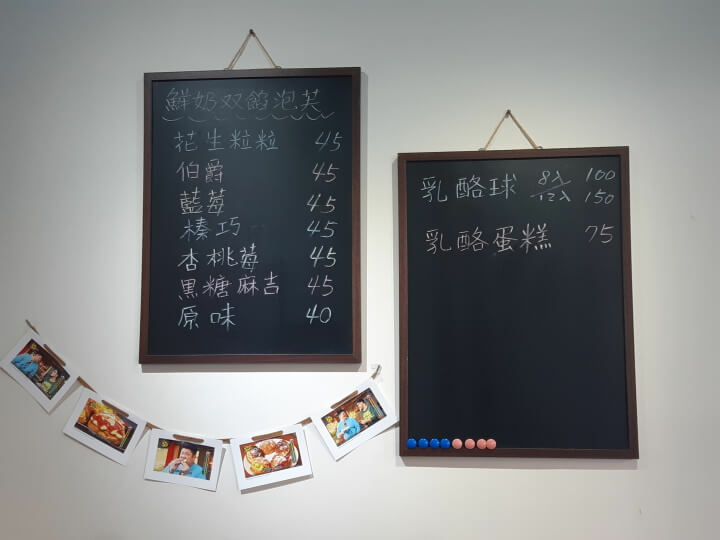 鮮奶双餡泡芙
花生粒粒 45
伯爵 45
藍莓 45
榛巧 45
杏桃莓 45
黑糖麻吉 45
原味 40
乳酪球 8入 100
12入 150
乳酪蛋糕 75